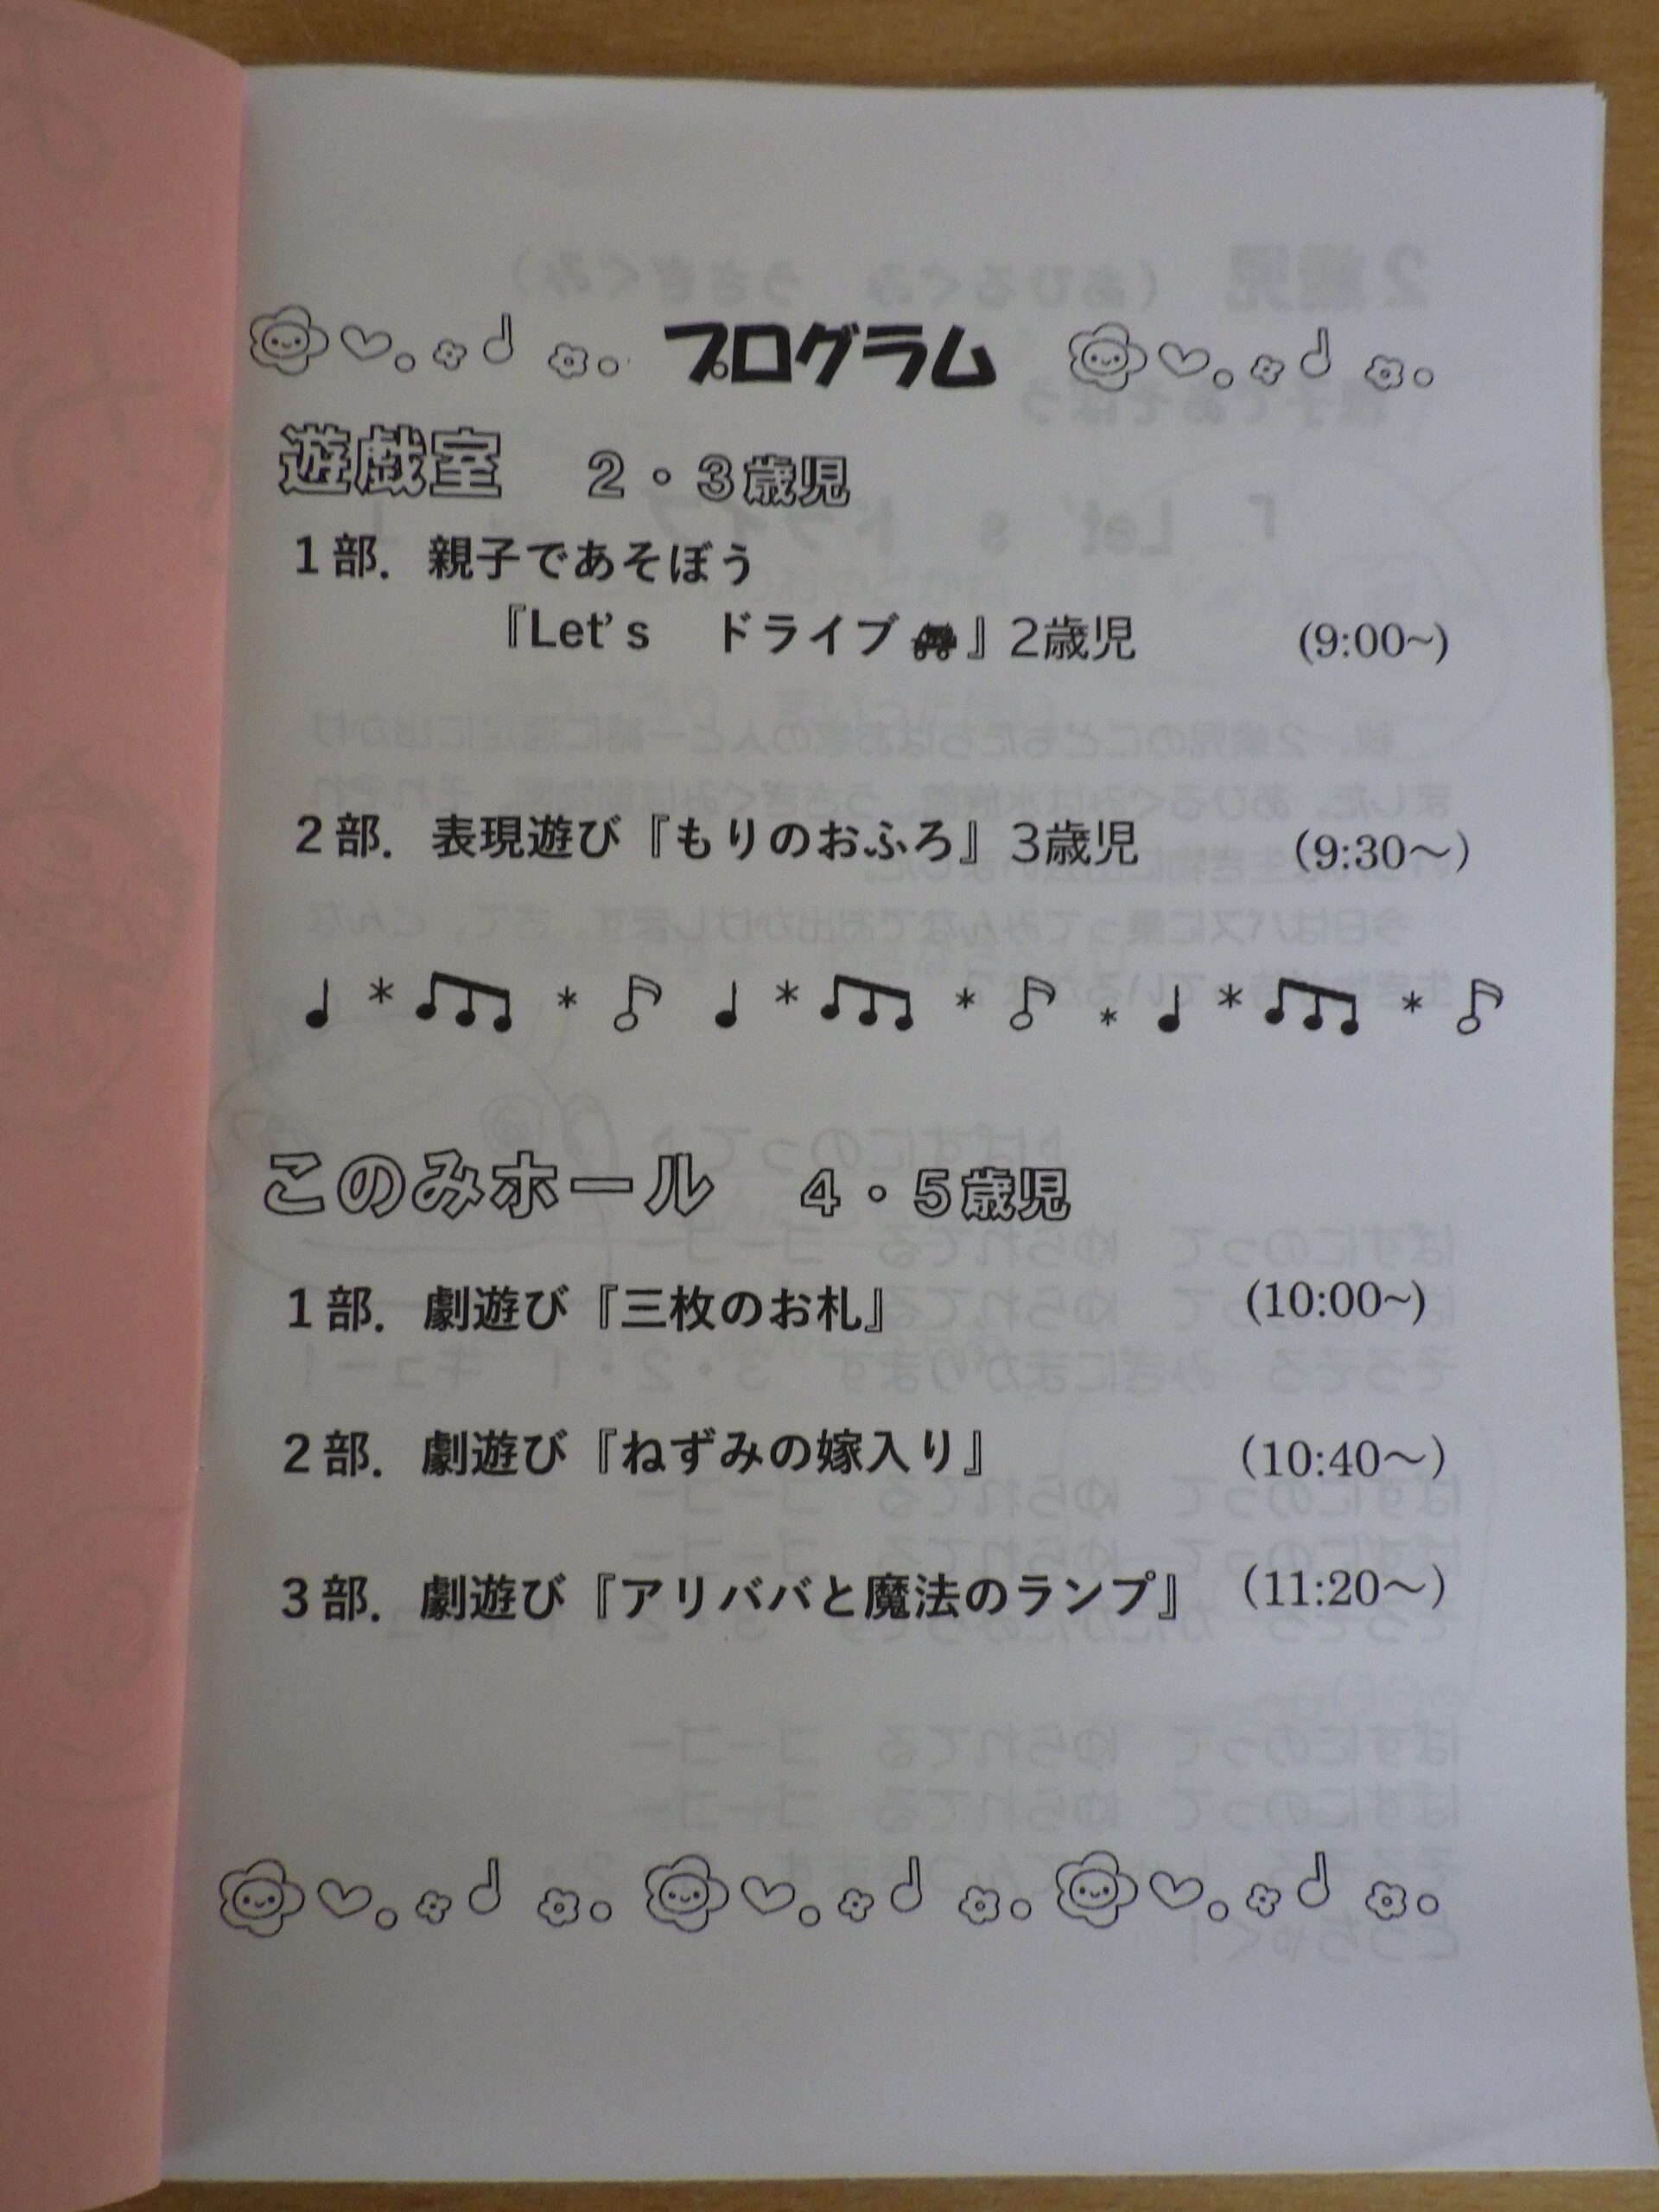 プログラム
遊戯室　２・３歳児
１部．親子であそぼう
『Let's　ドライブ』2歳児　(9:00~)
２部．表現遊び『もりのおふろ』3歳児　（9:30～）
このみホール　４・５歳児
１部．劇遊び『三枚のお札』　(10:00~)
２部．劇遊び『ねずみの嫁入り』　（10:40～）
３部．劇遊び『アリババと魔法のランプ』（11:20～）